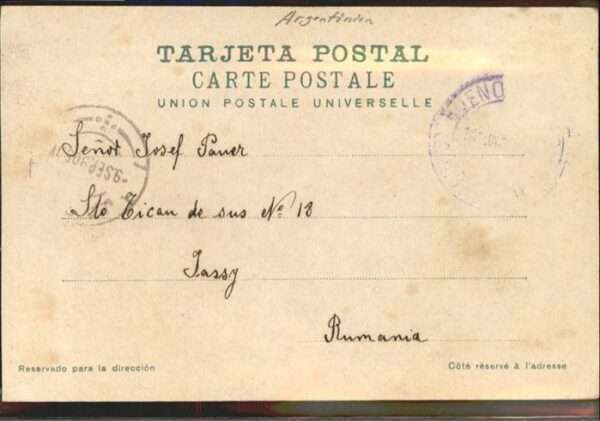 Argentinien
TARJETA POSTAL
CARTE POSTALE
UNION POSTALE UNIVERSELLE
Señor Josef Pauer
Sto Tican de sus No 18
Jassy
Rumania
Reservado para la dirección
Côté réservé à l'adresse